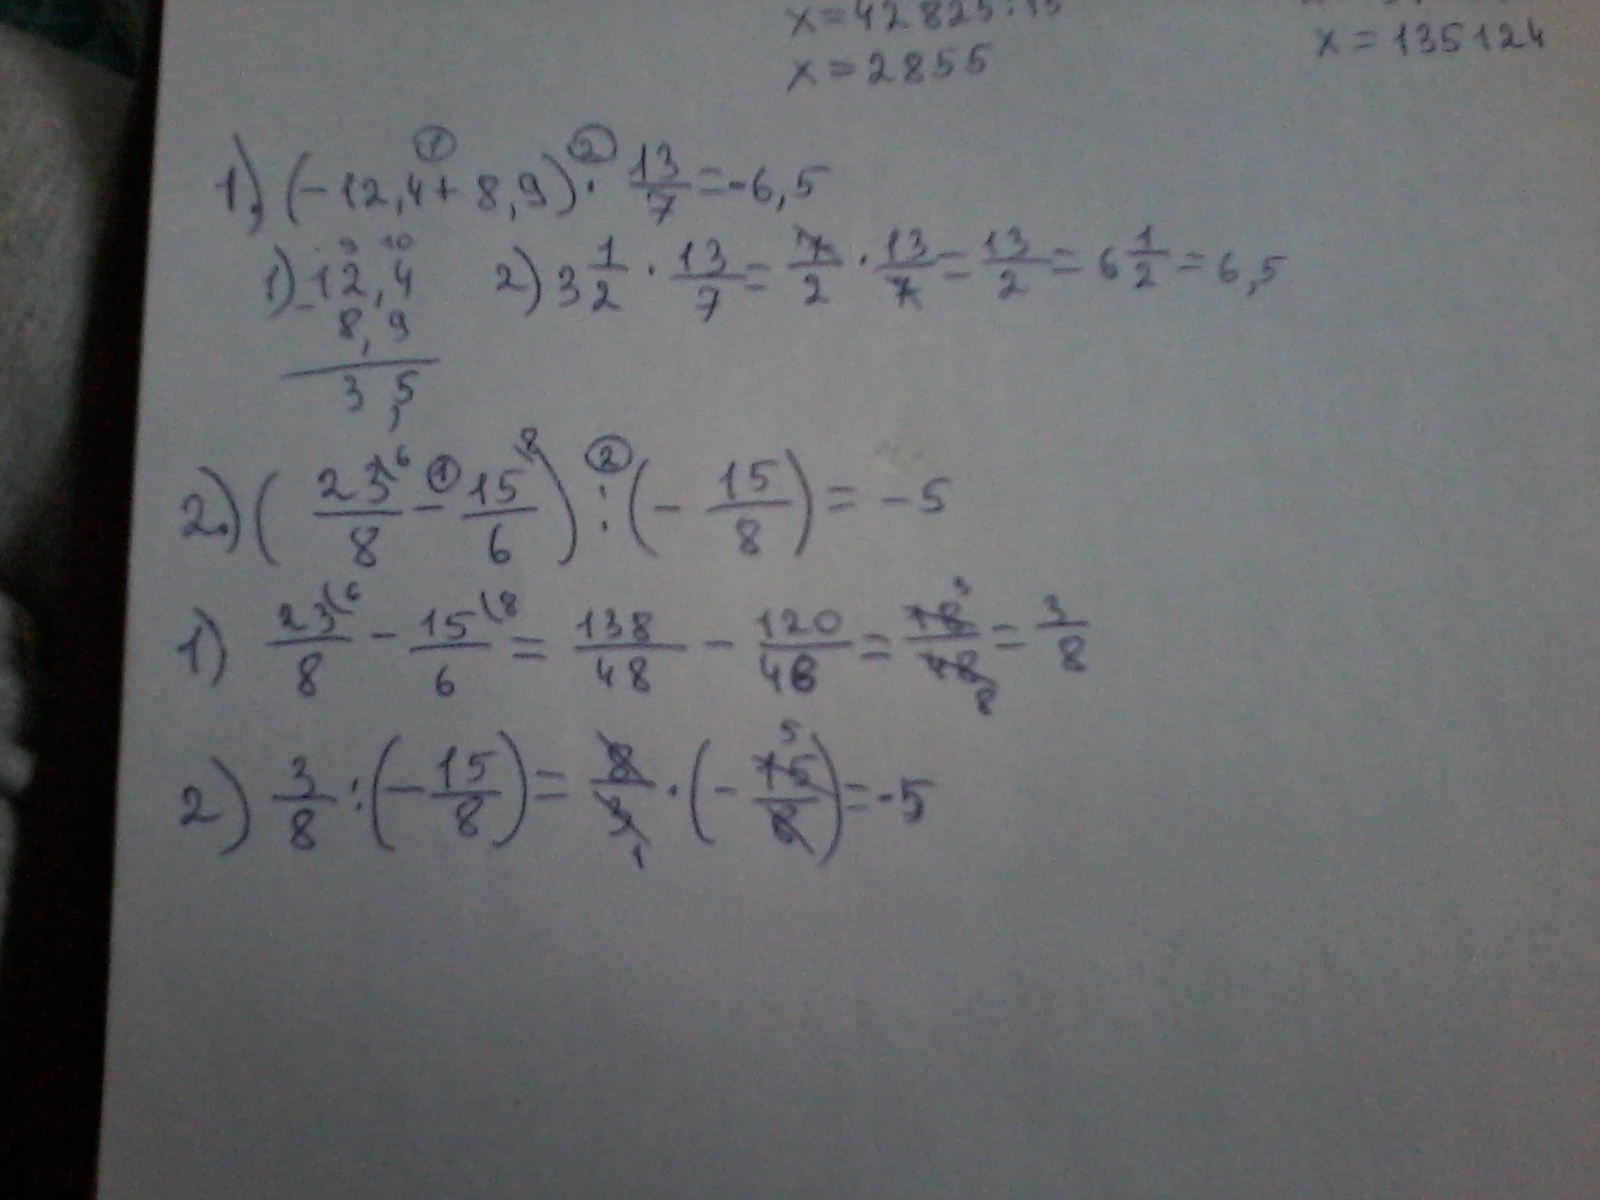 x=42825:15
x=2855
x=135124
1) (-12,4+8,9)·13/7=-6,5
1) -12,4
8,9
3,5
2) 3 1/2 · 13/7 = 7/2 · 13/7 = 13/2 = 6 1/2 = 6,5
2.) (23/8 - 15/6) : (-15/8) = -5
1) 23/8 - 15/6 = 138/48 - 120/48 = 18/48 = 3/8
2) 3/8 : (-15/8) = 8/3 · (-15/8) = -5